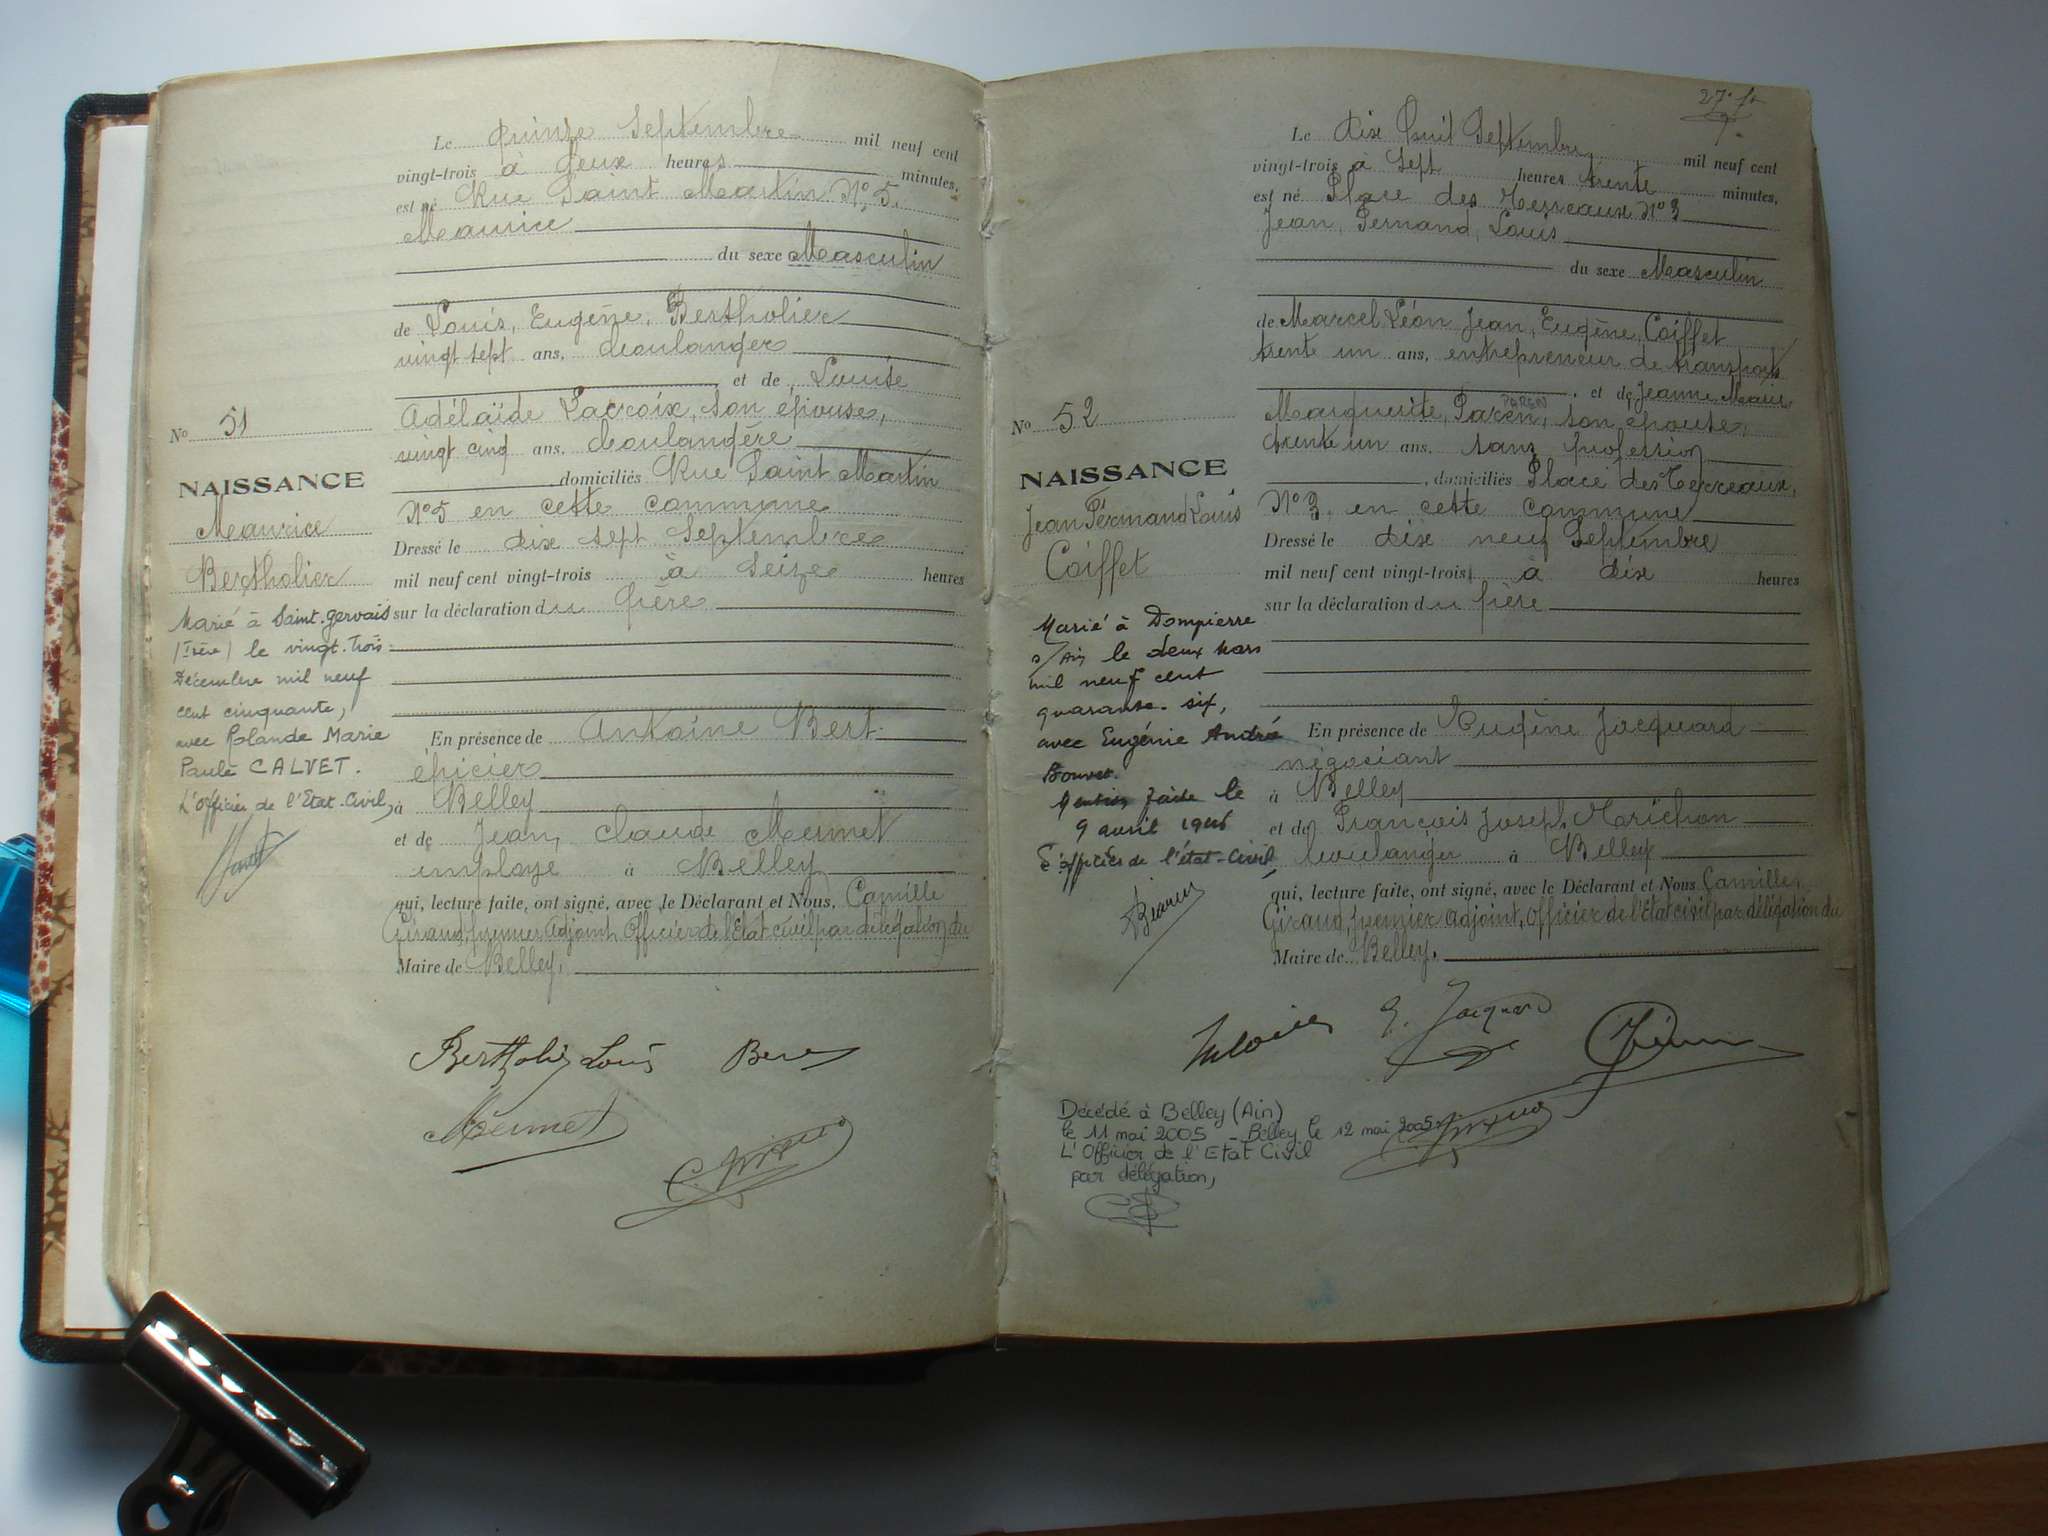 Le quinze Septembre mil neuf cent
vingt-trois à deux heures minutes,
est né Rue Saint Martin N° 5.
Maurice
du sexe Masculin
de Louis, Eugène, Bertholier
vingt sept ans, boulanger
et de Louise
Adélaïde Lacroix, son épouse,
vingt cinq ans, boulangère
domiciliés Rue Saint Martin
N° 5 en cette commune
Dressé le dix sept Septembre
mil neuf cent vingt-trois à Seize heures
sur la déclaration du père
En présence de Antoine Bert
épicier
à Belley
et de Jean, Claude Mermet
employé à Belley
qui, lecture faite, ont signé, avec le Déclarant et Nous, Camille
Giraud, premier Adjoint, Officier de l'Etat civil par délégation du
Maire de Belley.
N° 51
NAISSANCE
Maurice
Bertholier
Marié à Saint-Gervais
(Isère) le vingt-trois
Décembre mil neuf
cent cinquante,
avec Rolande Marie
Paule CALVET.
L'Officier de l'Etat-Civil,
Bertholier Louis
Mermet
27° f°
Le dix huit Septembre mil neuf cent
vingt-trois à sept heures trente minutes,
est né Place des Terreaux N° 3
Jean, Fernand, Louis
du sexe Masculin
de Marcel Léon Jean, Eugène, Coiffet
trente un ans, entrepreneur de transports
et de Jeanne Marie
PAREN
Marguerite, Paren, son épouse,
trente un ans, sans profession
, domiciliés Place des Terreaux,
N° 3, en cette commune
Dressé le dix neuf Septembre
mil neuf cent vingt-trois à dix heures
sur la déclaration du père
En présence de Eugène Jacquard
négociant
à Belley
et de François Joseph Marichon
boulanger à Belley
qui, lecture faite, ont signé, avec le Déclarant et Nous Camille
Giraud, premier adjoint, Officier de l'Etat civil par délégation du
Maire de Belley.
N° 52
NAISSANCE
Jean Fernand Louis
Coiffet
Marié à Dompierre
s/Ain le deux Mars
mil neuf cent
quarante-six,
avec Eugénie Andrée
Bouvet.
Mention faite le
9 avril 1946
L'officier de l'état-civil,
Décédé à Belley (Ain)
le 11 mai 2005 _ Belley, le 12 mai 2005
L'Officier de l'Etat Civil
par délégation,